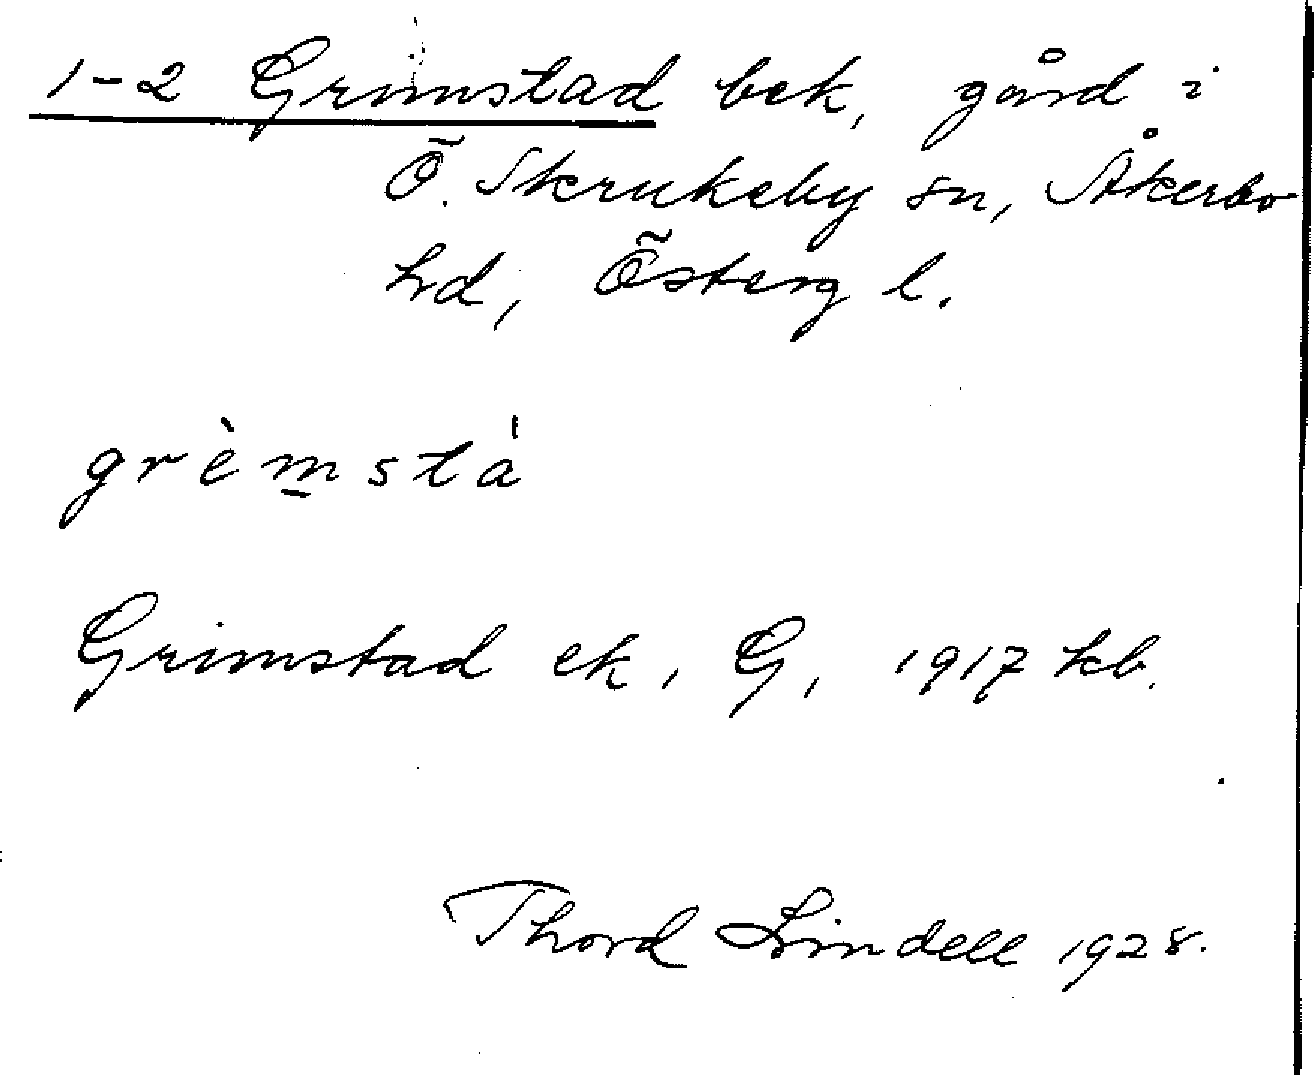 1-2 Grimstad bek, gård i
Ö. Skrukeby sn, Åkerbo
hd, Österg l.
grèm̲stá
Grimstad ek, G, 1917 kb.
Thord Lindell 1928.